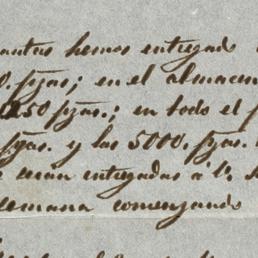 hemos entregado
fzas; en el almacen
250 fzas.; en todo el
fzas. y las 5000. fzas.
serán entregadas á
semana comenzando